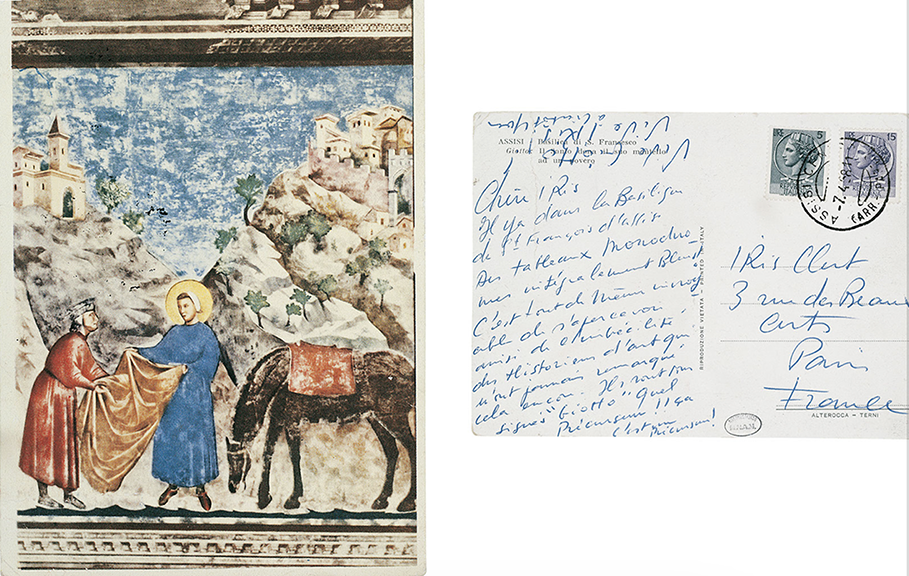 ASSISI - Basilica di S. Francesco
Giotto: Il Santo dona il suo mantello
ad un povero
Chère IRIS
Il y a dans la Basilique
de St François d'Assise
des tableaux monochro
mes intégralement Bleus!
C'est tout de même incroy
able de s'apercevoir
ainsi de l'imbécilité
des Historiens d'art qui
n'ont jamais remarqué
cela encore. Ils sont tous
signés "Giotto" Quel
Précurseur! Il y a
C'est un
Précurseur!
REPRODUZIONE VIETATA - PRINTED IN ITALY
5
15
ASSISI
7.4.58
IRIS Clert
3 rue des Beaux
Arts
Paris
France
ALTEROCCA - TERNI